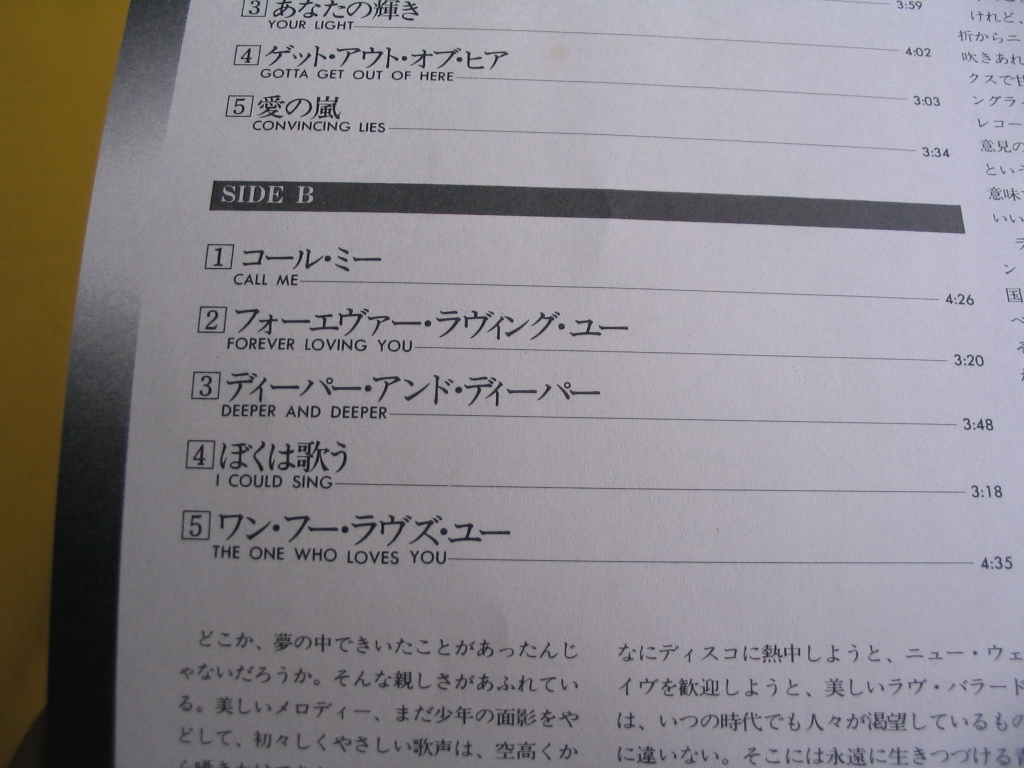 3 あなたの輝き
YOUR LIGHT 3:59
4 ゲット・アウト・オブ・ヒア
GOTTA GET OUT OF HERE 4:02
5 愛の嵐 3:03
CONVINCING LIES 3:34
SIDE B
1 コール・ミー
CALL ME 4:26
2 フォーエヴァー・ラヴィング・ユー
FOREVER LOVING YOU 3:20
3 ディーパー・アンド・ディーパー
DEEPER AND DEEPER 3:48
4 ぼくは歌う
I COULD SING 3:18
5 ワン・フー・ラヴズ・ユー
THE ONE WHO LOVES YOU 4:35
どこか、夢の中できいたことがあったんじ
ゃないだろうか。そんな親しさがあふれてい
る。美しいメロディー、まだ少年の面影をや
どして、初々しくやさしい歌声は、空高くか
なにディスコに熱中しようと、ニュー・ウェ
イヴを歓迎しようと、美しいラヴ・バラード
は、いつの時代でも人々が渇望しているもの
に違いない。そこには永遠に生きつづける青
けれど、
折からニ
吹きあれ
クスで甘
ングラ
レコー
意見の
とい
意味
いい
ラ
ン
国